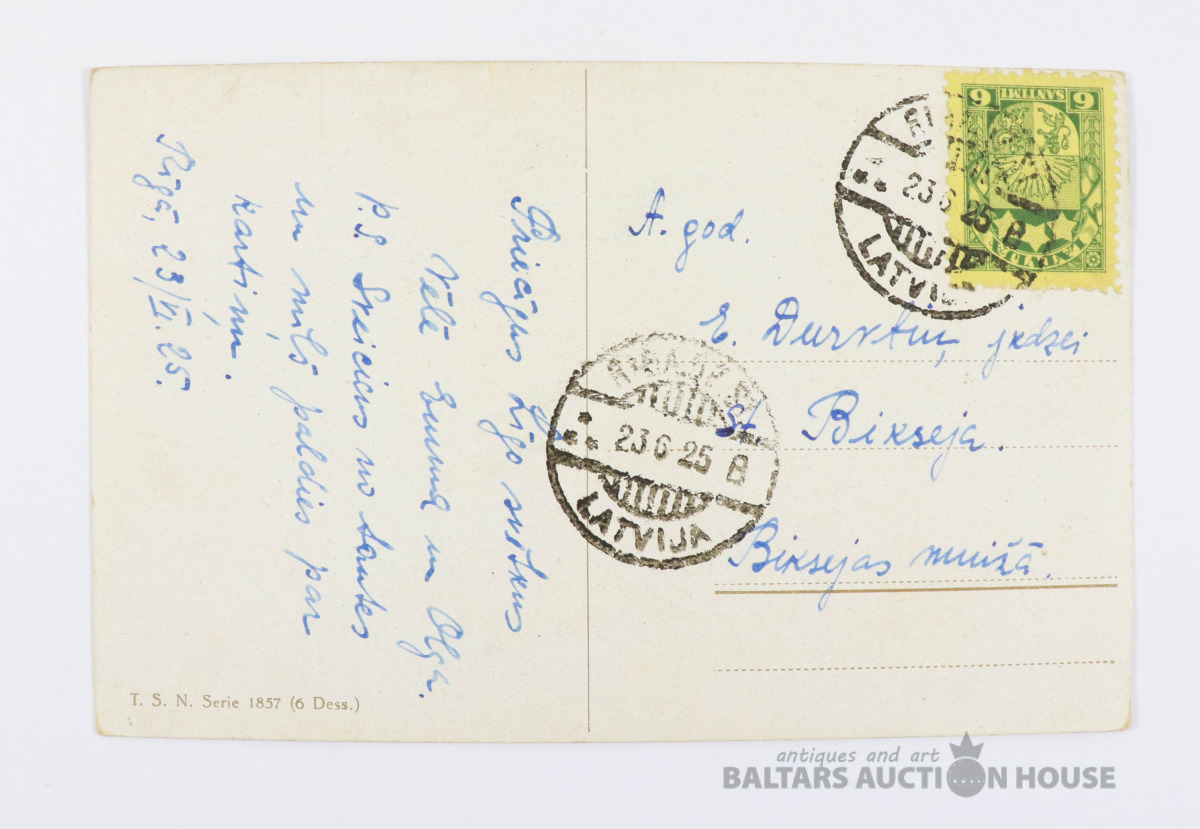 Priecīgus Līgo svētkus
Vēlē Emma un Olga.
P.S. Sveicieus no tantes
un mīļš paldies par
kartiņu.
Rīgā, 23/VI. 25.
T. S. N. Serie 1857 (6 Dess.)
A. god.
E. jkdzei
St. Bikseja.
Biksejas muižā.
23 6 25 B
LATVIJA
23 6 25 B
LATVIJA
6 SANTIMI 6
6 LATVIJA 6
antiques and art
BALTARS AUCTION HOUSE